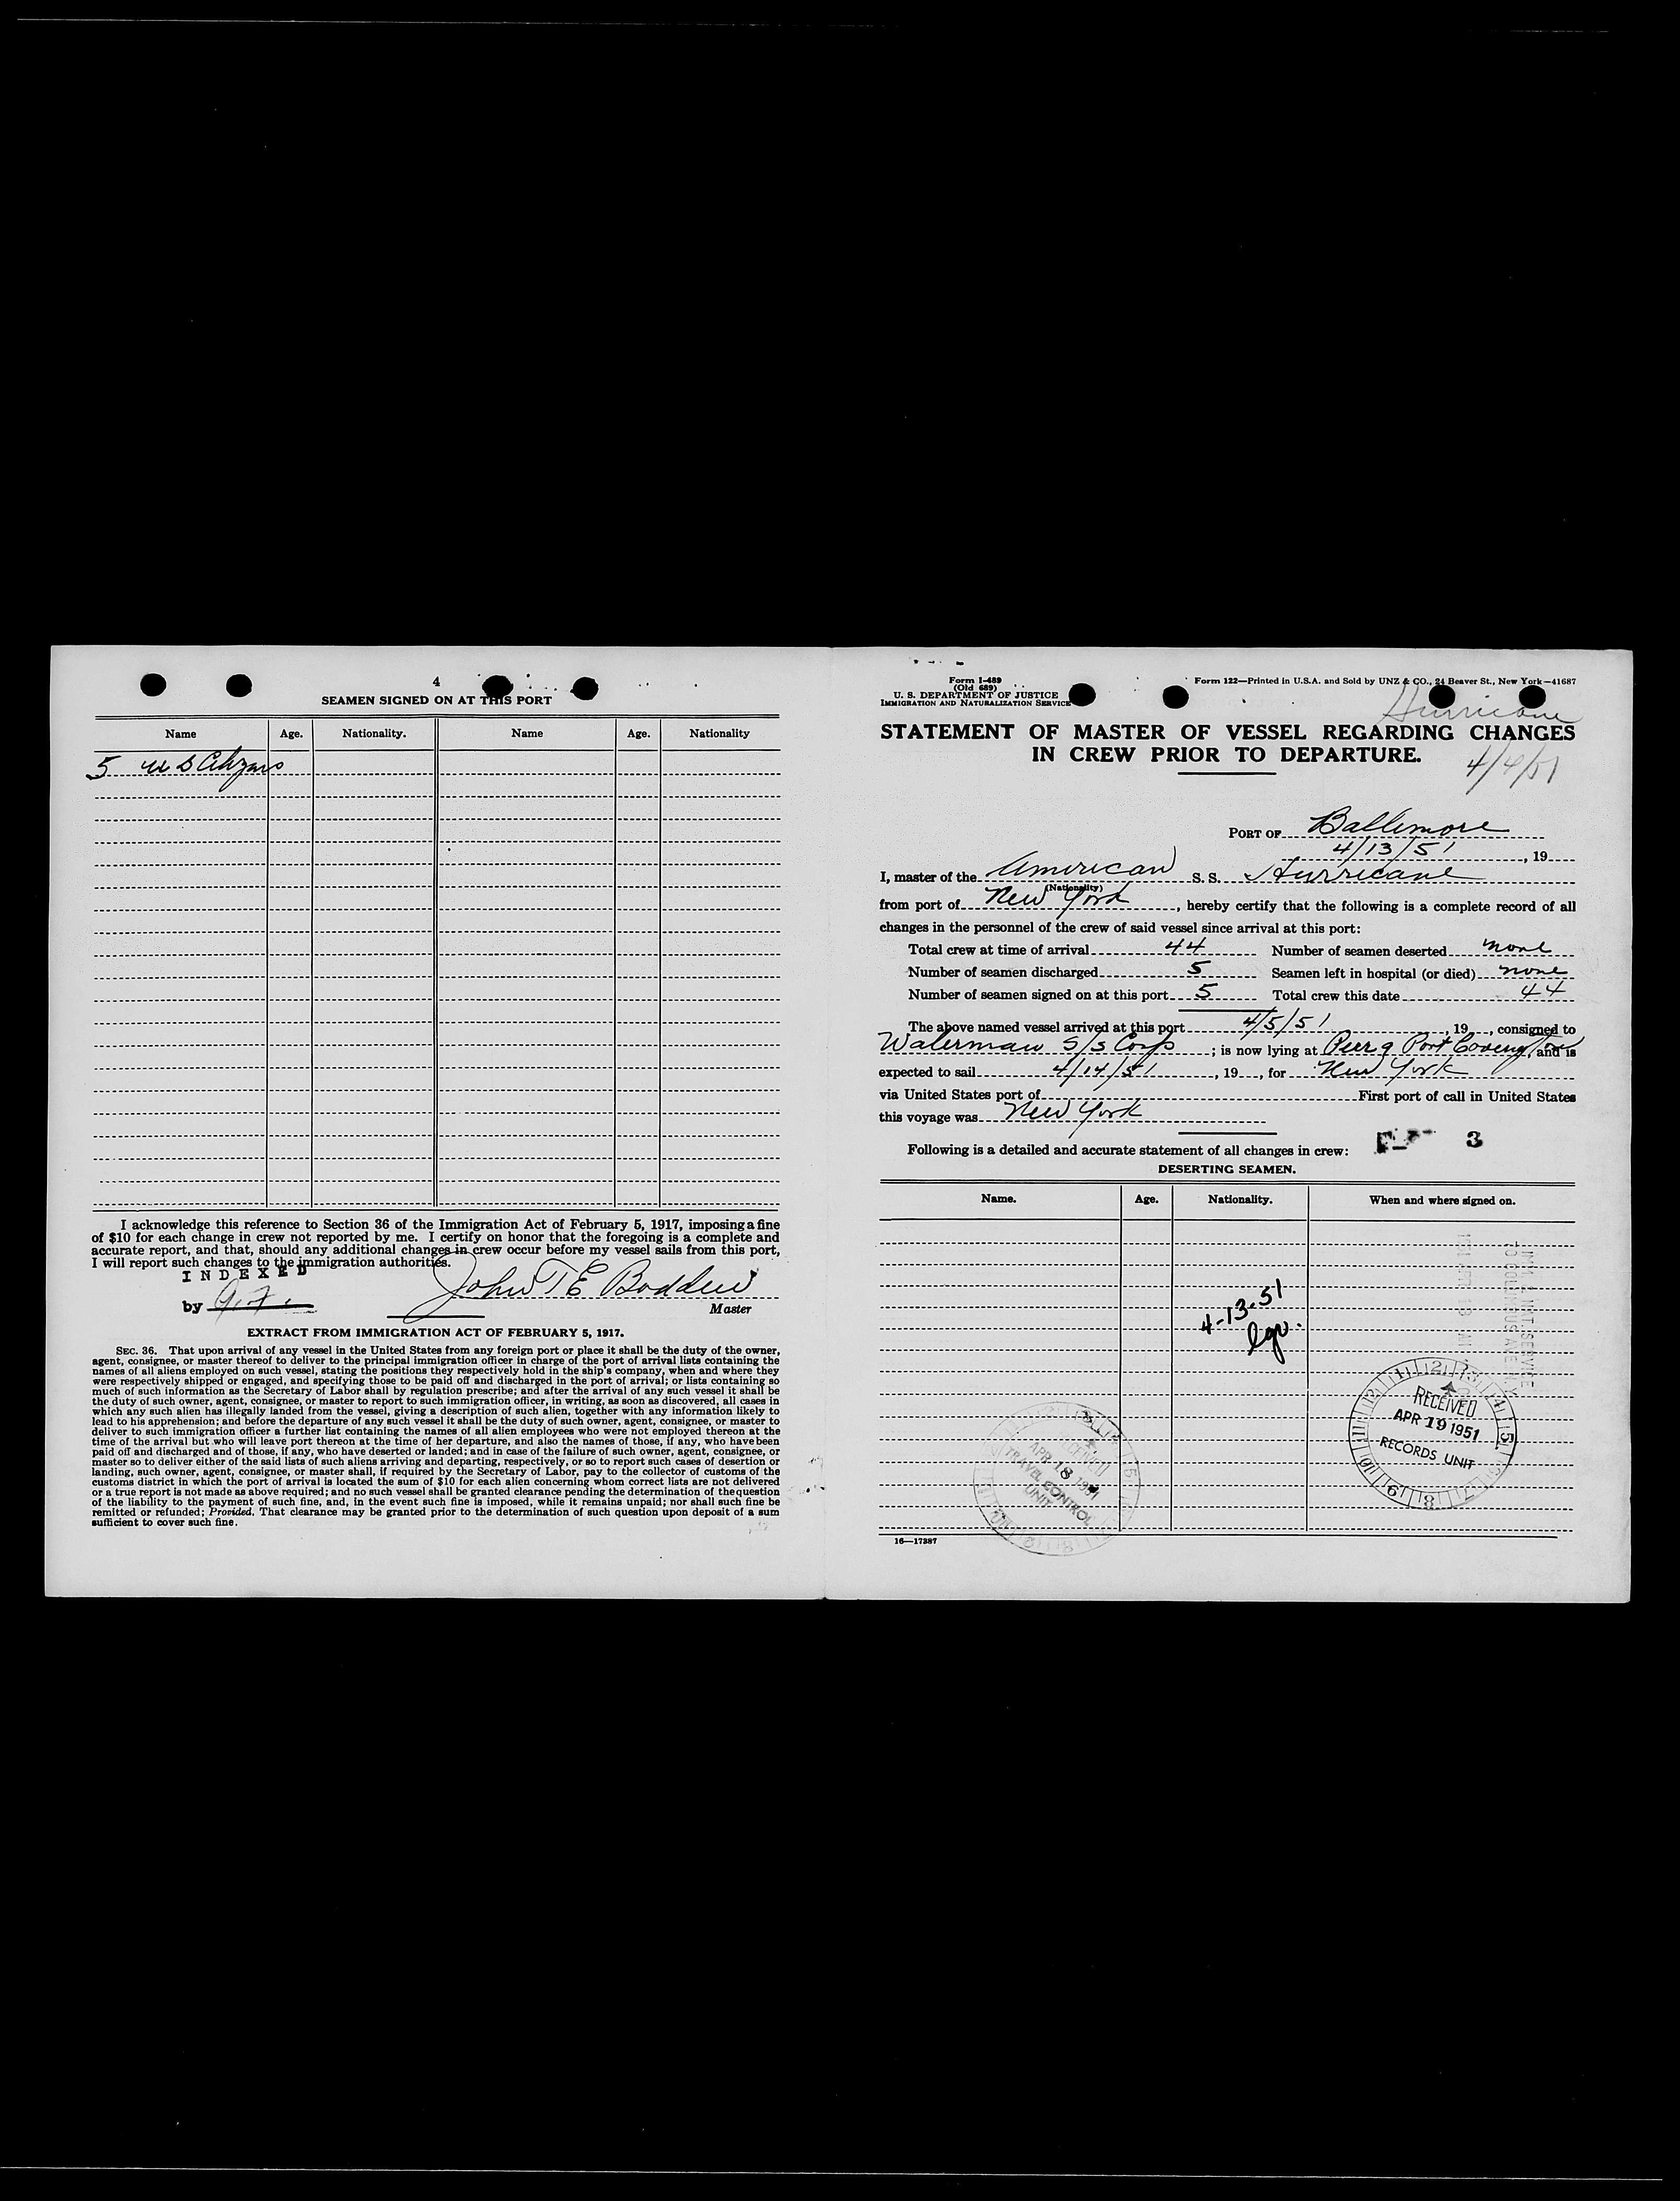 4
SEAMEN SIGNED ON AT THIS PORT
Name Age. Nationality. Name Age. Nationality
5 U S Citizens
I acknowledge this reference to Section 36 of the Immigration Act of February 5, 1917, imposing a fine
of $10 for each change in crew not reported by me. I certify on honor that the foregoing is a complete and
accurate report, and that, should any additional changes in crew occur before my vessel sails from this port,
I will report such changes to the immigration authorities.
INDEXED
John T E Bodden
by
Master
EXTRACT FROM IMMIGRATION ACT OF FEBRUARY 5, 1917.
SEC. 36. That upon arrival of any vessel in the United States from any foreign port or place it shall be the duty of the owner,
agent, consignee, or master thereof to deliver to the principal immigration officer in charge of the port of arrival lists containing the
names of all aliens employed on such vessel, stating the positions they respectively hold in the ship's company, when and where they
were respectively shipped or engaged, and specifying those to be paid off and discharged in the port of arrival; or lists containing so
much of such information as the Secretary of Labor shall by regulation prescribe; and after the arrival of any such vessel it shall be
the duty of such owner, agent, consignee, or master to report to such immigration officer, in writing, as soon as discovered, all cases in
which any such alien has illegally landed from the vessel, giving a description of such alien, together with any information likely to
lead to his apprehension; and before the departure of any such vessel it shall be the duty of such owner, agent, consignee, or master to
deliver to such immigration officer a further list containing the names of all alien employees who were not employed thereon at the
time of the arrival but who will leave port thereon at the time of her departure, and also the names of those, if any, who have been
paid off and discharged and of those, if any, who have deserted or landed; and in case of the failure of such owner, agent, consignee, or
master so to deliver either of the said lists of such aliens arriving and departing, respectively, or so to report such cases of desertion or
landing, such owner, agent, consignee, or master shall, if required by the Secretary of Labor, pay to the collector of customs of the
customs district in which the port of arrival is located the sum of $10 for each alien concerning whom correct lists are not delivered
or a true report is not made as above required; and no such vessel shall be granted clearance pending the determination of the question
of the liability to the payment of such fine, and, in the event such fine is imposed, while it remains unpaid; nor shall such fine be
remitted or refunded; Provided, That clearance may be granted prior to the determination of such question upon deposit of a sum
sufficient to cover such fine.
Form I-489
(Old 689)
U. S. DEPARTMENT OF JUSTICE
IMMIGRATION AND NATURALIZATION SERVICE
Form 122—Printed in U.S.A. and Sold by UNZ & CO., 24 Beaver St., New York—41687
Hurricane
STATEMENT OF MASTER OF VESSEL REGARDING CHANGES
IN CREW PRIOR TO DEPARTURE.
4/4/51
PORT OF Baltimore
4/13/51, 19
I, master of the American S. S. Hurricane
(Nationality)
from port of New York, hereby certify that the following is a complete record of all
changes in the personnel of the crew of said vessel since arrival at this port:
Total crew at time of arrival 44 Number of seamen deserted none
Number of seamen discharged 5 Seamen left in hospital (or died) none
Number of seamen signed on at this port 5 Total crew this date 44
The above named vessel arrived at this port 4/5/51, 19, consigned to
Waterman S/S Corp; is now lying at Pier 9 Port Covington, and is
expected to sail 4/14/51, 19, for New York
via United States port of First port of call in United States
this voyage was New York
3
Following is a detailed and accurate statement of all changes in crew:
DESERTING SEAMEN.
Name. Age. Nationality. When and where signed on.
4-13-51
RECEIVED
APR 19 1951
RECORDS UNIT
RECEIVED
APR 18 1951
TRAVEL CONTROL
UNIT
16—17387